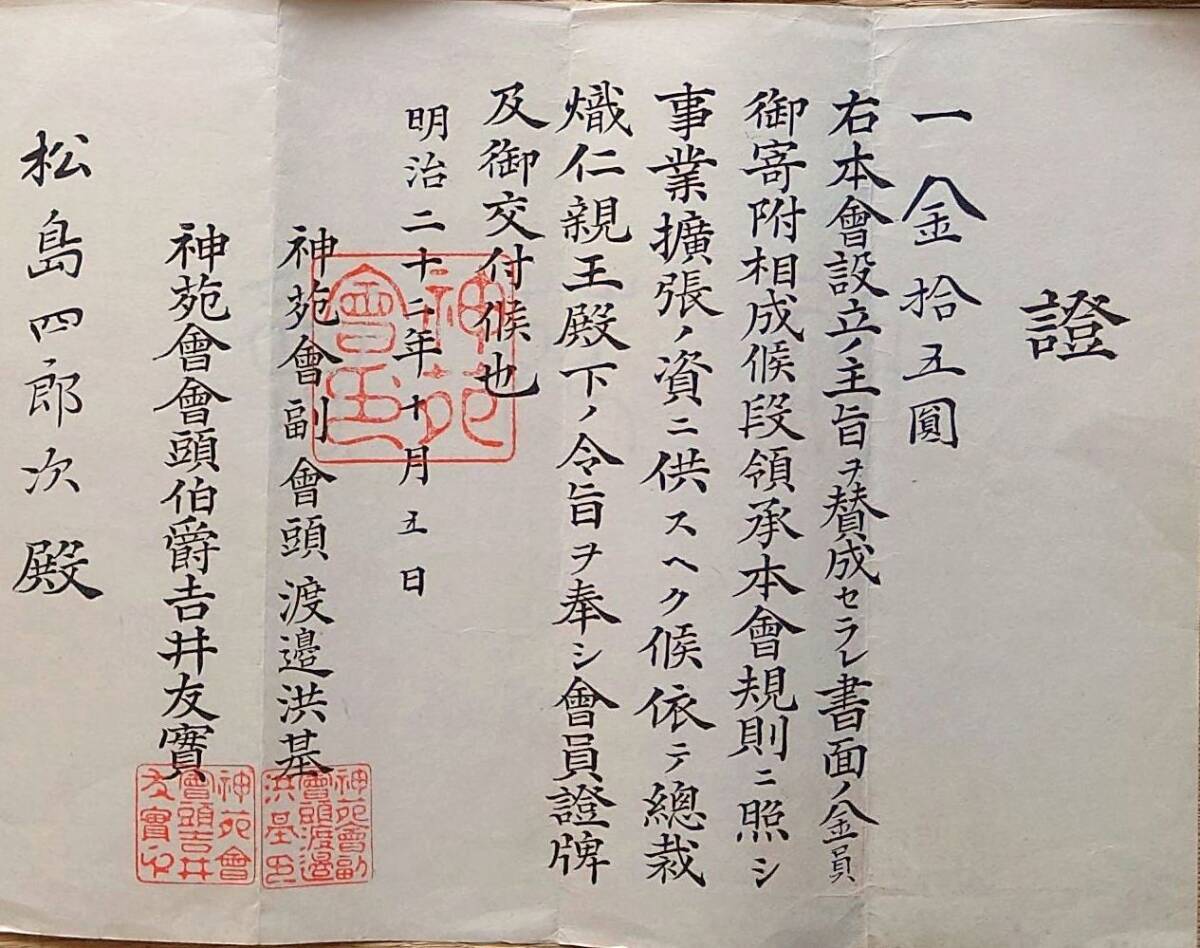 證
一金拾五圓
右本會設立ノ主旨ヲ賛成セラレ書面ノ金員
御寄附相成候段領承本會規則ニ照シ
事業擴張ノ資ニ供スヘク候依テ總裁
熾仁親王殿下ノ令旨ヲ奉シ會員證牌
及御交付候也
明治二十二年十月五日
神苑會副會頭渡邉洪基
神苑會會頭伯爵吉井友實
松島四郎次殿
神苑
會印
神苑會副
會頭渡邉
洪基印
神苑會
會頭吉井
友實印